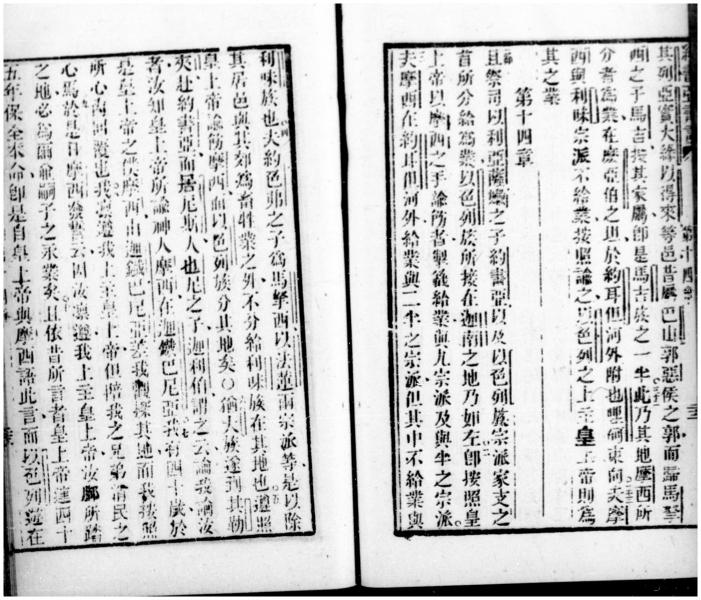 其列亞實大綠以得來等邑昔屬巴山郭惡侯之郭而歸馬拏
西之子馬吉按其家屬卽是馬吉族之一半此乃其地摩西所
分者為業在麼亞伯之坦於約耳但河外附也哩哥東向夫摩
西與利味宗派不給業按照諭之以色列之上主皇上帝則為
其之業
第十四章
且祭司以利亞薩嫩之子約書亞以及以色列族宗派家支之
首所分給為業以色列族所接在迦南之地乃如左卽按照皇
上帝以摩西之手諭所者掣籤給業與九宗派及與半之宗派
夫摩西在約耳但河外給業與二半之宗派但其中不給業與
利味族也夫約色弗之子為馬拏西以法蓮兩宗派等是以除
其居邑與其郊為畜牲業之外不分給利味族在其地也遵照
皇上帝諭所摩西而以色列族分其地矣〇猶大族遂到其勒
夾赴約書亞而居尼斯人也尼之子迦利伯謂之云論我講汝
者汝知皇上帝所諭神人摩西在迦鐵巴尼亞我有四十歲於
是皇上帝之僕摩西由迦鐵巴尼亞差我覯探其地而我按照
所心為回覆也我凜遵我上主皇上帝但偕我之兄弟消民之
心焉於是日摩西發誓云因汝凜遵我上主皇上帝汝腳所踏
之地必為爾爺嗣子之永業矣且依昔所言者皇上帝逹四十
五年保全本命卽是自皇上帝與摩西語此言而以色列遊在